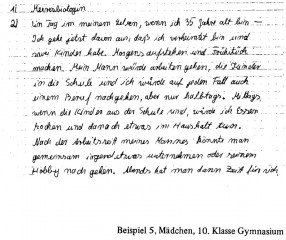 1) Meeresbiologin
2) Ein Tag in meinem Leben, wenn ich 35 Jahre alt bin —
Ich gehe jetzt davon aus, daß ich verheiratet bin und
zwei Kinder habe. Morgens aufstehen und Frühstück
machen. Mein Mann würde arbeiten gehen, die Kinder
in die Schule und ich würde auf jeden Fall auch
einem Beruf nachgehen, aber nur halbtags. Mittags,
wenn die Kinder aus der Schule sind, würde ich Essen
kochen und danach etwas im Haushalt tun.
Nach der Arbeitszeit meines Mannes könnte man
gemeinsam irgend etwas unternehmen oder seinem
Hobby nach gehen. Abends hat man dann Zeit für sich,
Beispiel 5, Mädchen, 10. Klasse Gymnasium